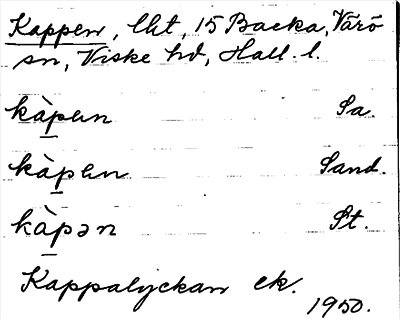 Kappen, lht, 15 Backa, Värö
sn, Viske hd, Hall. l.
kàpen Sa.
kàpen Sand.
kàpən St.
Kappalyckan ek.
1950.